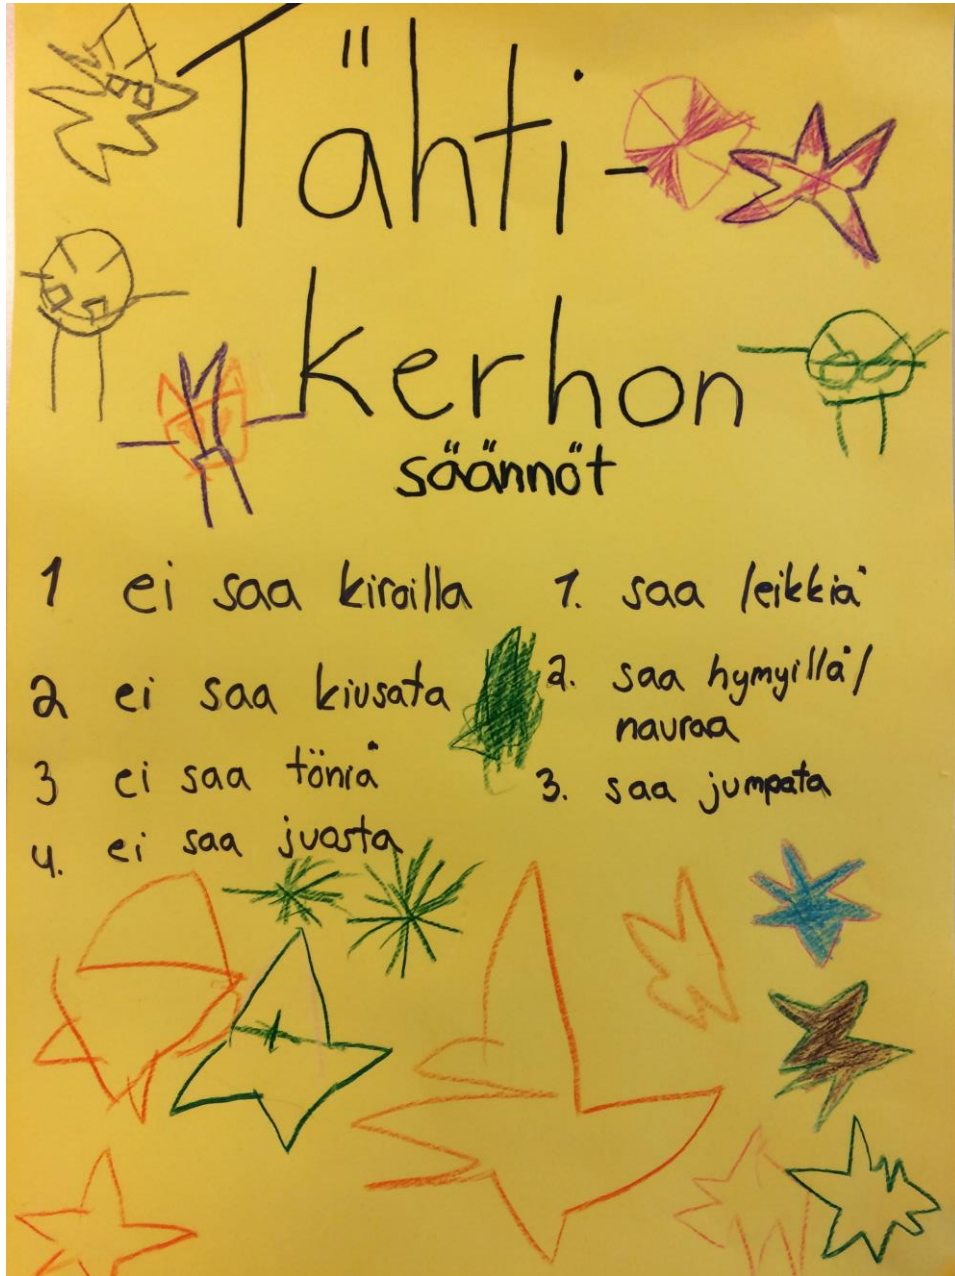 Tähti-
kerhon
säännöt
1 ei saa kiroilla
2 ei saa kiusata
3 ei saa töniä
4. ei saa juosta
1. saa leikkiä
2. saa hymyillä/
nauraa
3. saa jumpata